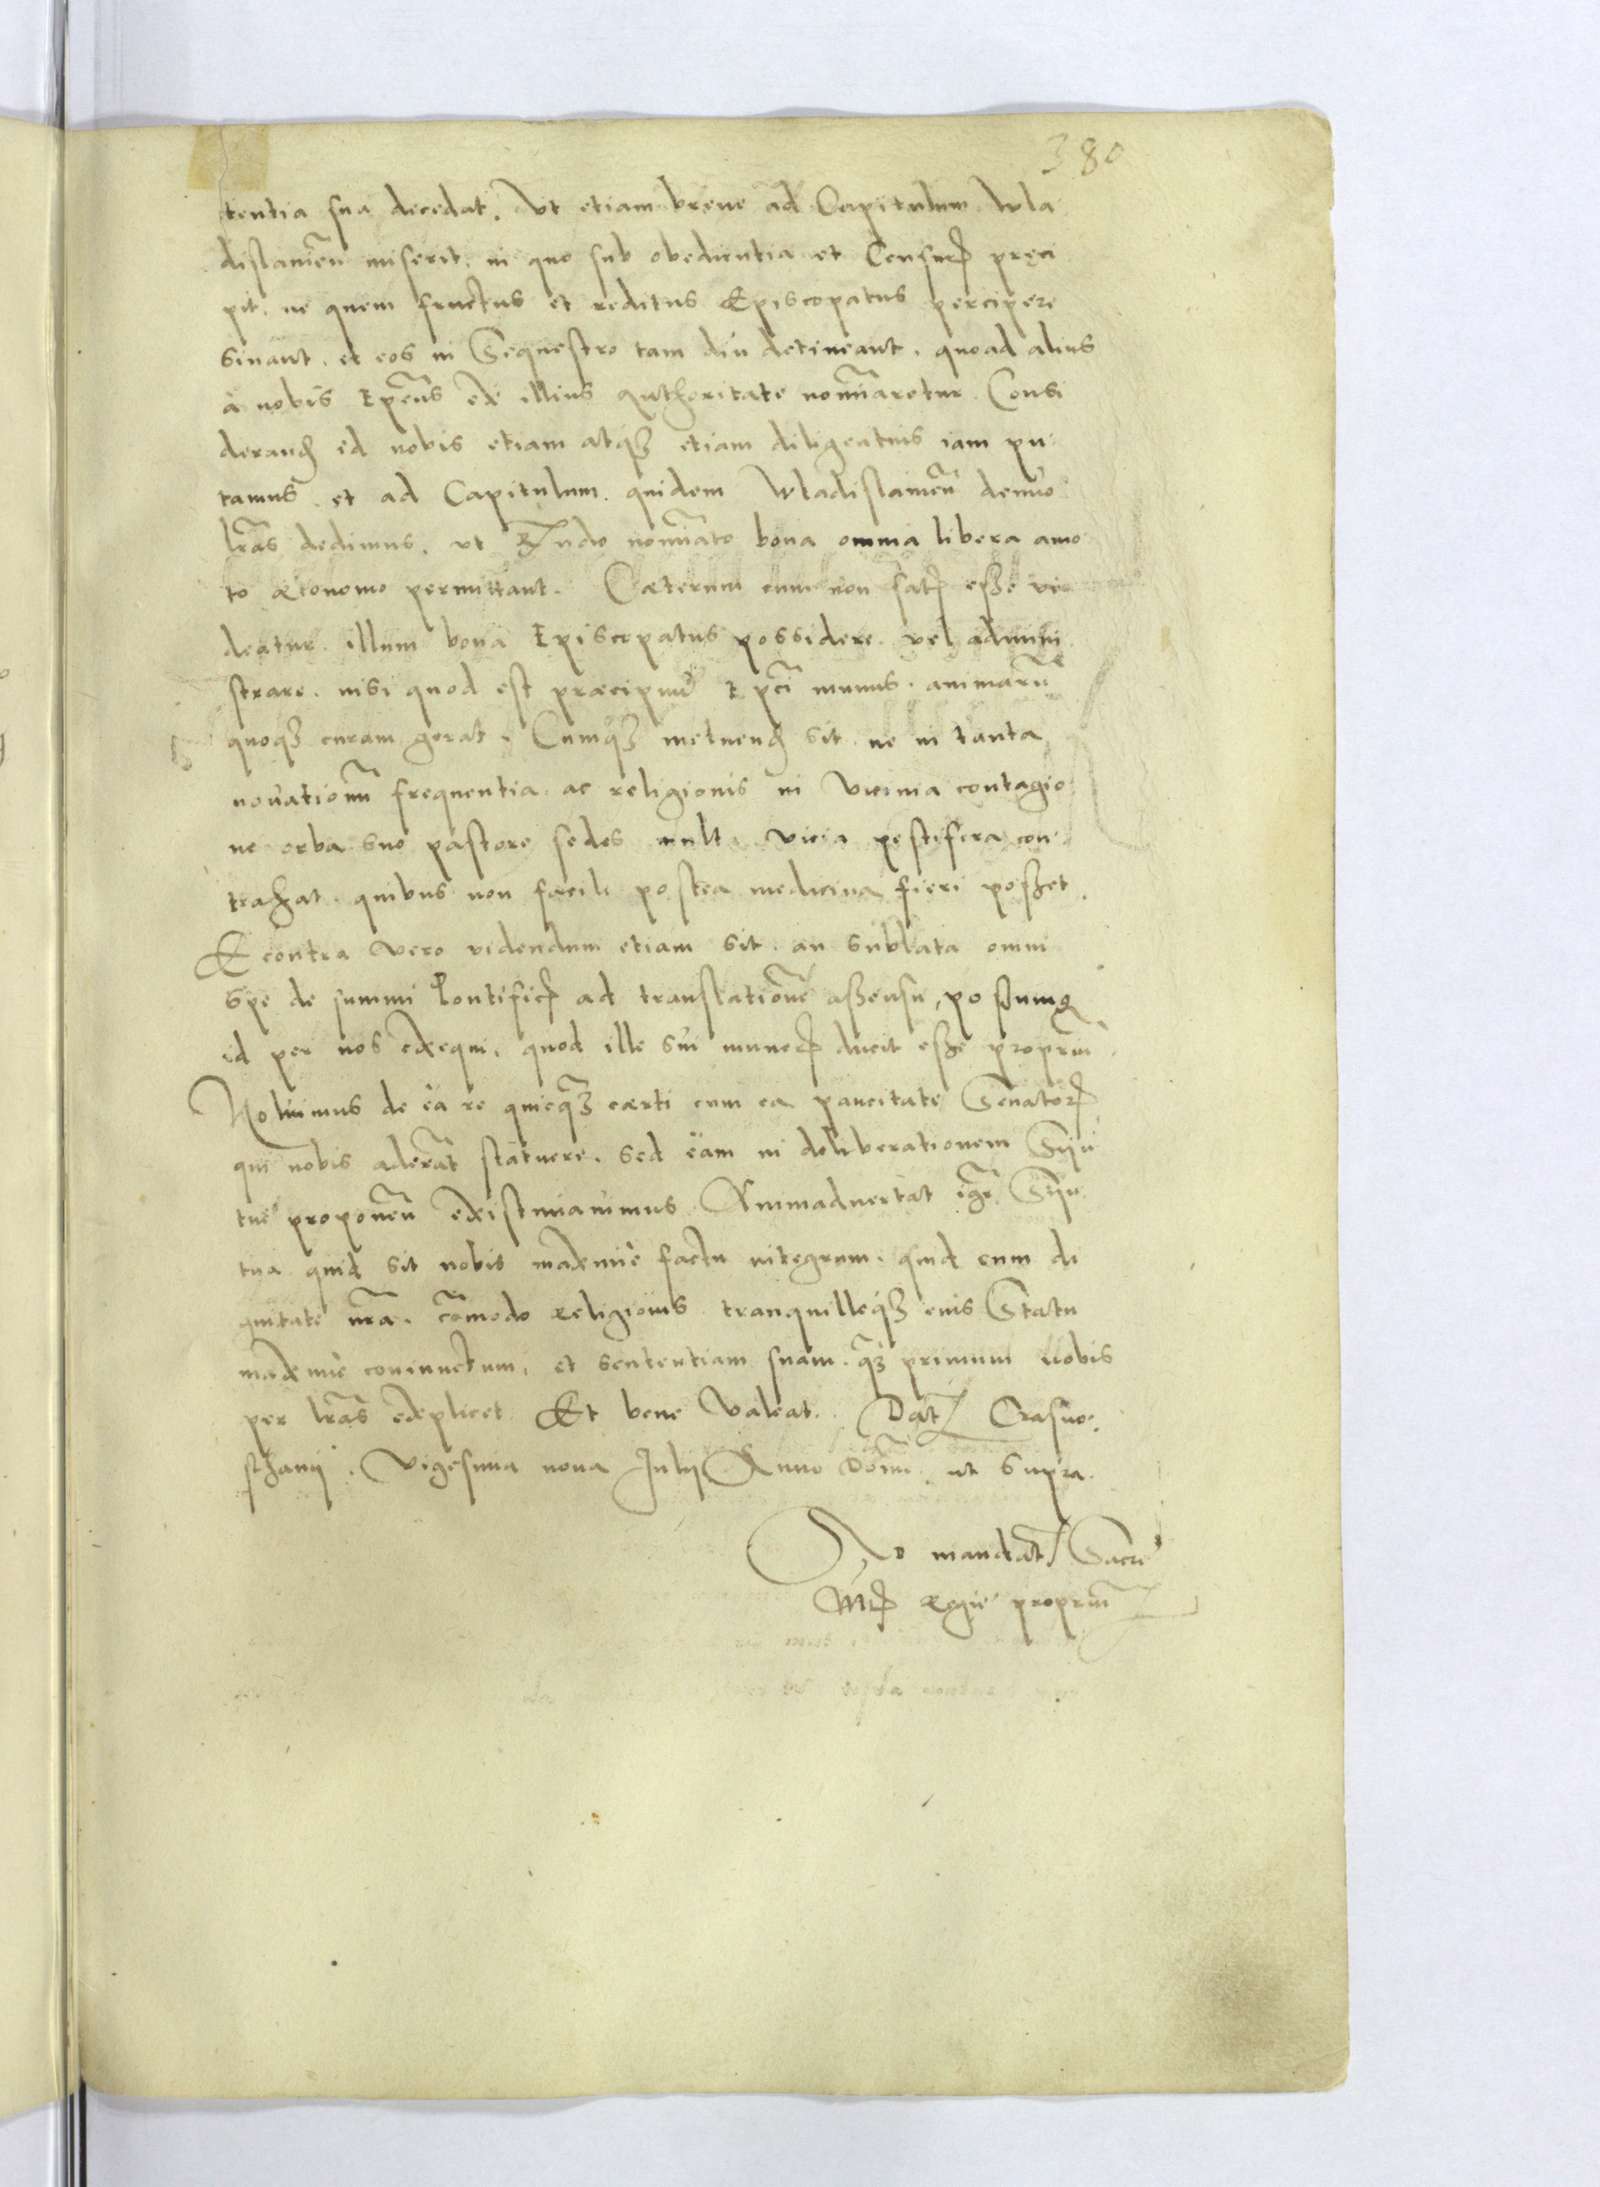 380
tentia sua decedat. Ut etiam breve ad Capitulum Wla
dislavieñ miserit, in quo sub obedientia et Censuris pręci
pit, ne quem fructus et reditus Episcopatus percipere
sinant, et eos in Sequestro tam diu detineant, quoad alius
à nobis Ep̃cus ex illius authoritate nom̃iaretur. Consi
derandũ id nobis etiam atq̃ꝫ etiam diligentius iam pu
tamus, et ad Capitulum quidem Wladislavieñ denuo
lr̃as dedimus, ut Rñdo nomĩato bona omnia libera amo
to œconomo permittant. Cæterum cum non satis esse vi
deatur illum bona Episcopatus possidere vel admini
strare, nisi quod est præcipuũ Ep̃ci munus, animarũ
quoq̃ꝫ curam gerat. Cumq̃ꝫ metuendũ sit, ne in tanta
novationũ frequentia ac religionis in vicinia contagio
ne orba suo pastore sedes multa vicia pestifera con
trahat, quibus non facile postea medicina fieri posset.
E contra vero videndum etiam sit, an sublata omni
spe de summi Pontificis ad translationẽ assensu, possumus
id per nos exequi, quod ille sui muneris ducit esse propriũ.
Noluimus de ea re quicq̃ꝫ cærti cum ea paucitate Senatorũ
qui nobis aderãt statuere, sed eam in deliberationem Syñ
tuę proponeñ existimavimus. Animadvertat igr̃ Syñ
tua quid sit nobis maxime factu integrum, quid cum di
gnitate nr̃a, cõmodo religionis tranquilloq̃ꝫ eius Statu
maxime coniunctum, et sententiam suam q̃ꝫ primum nobis
per lr̃as explicet. Et bene valeat. Dat̃ Crasno
sthavij. Vigesima nona Julij Anno Dõni ut supra.
Ad mandat̃ Sacre
Mtis Regie propriũ